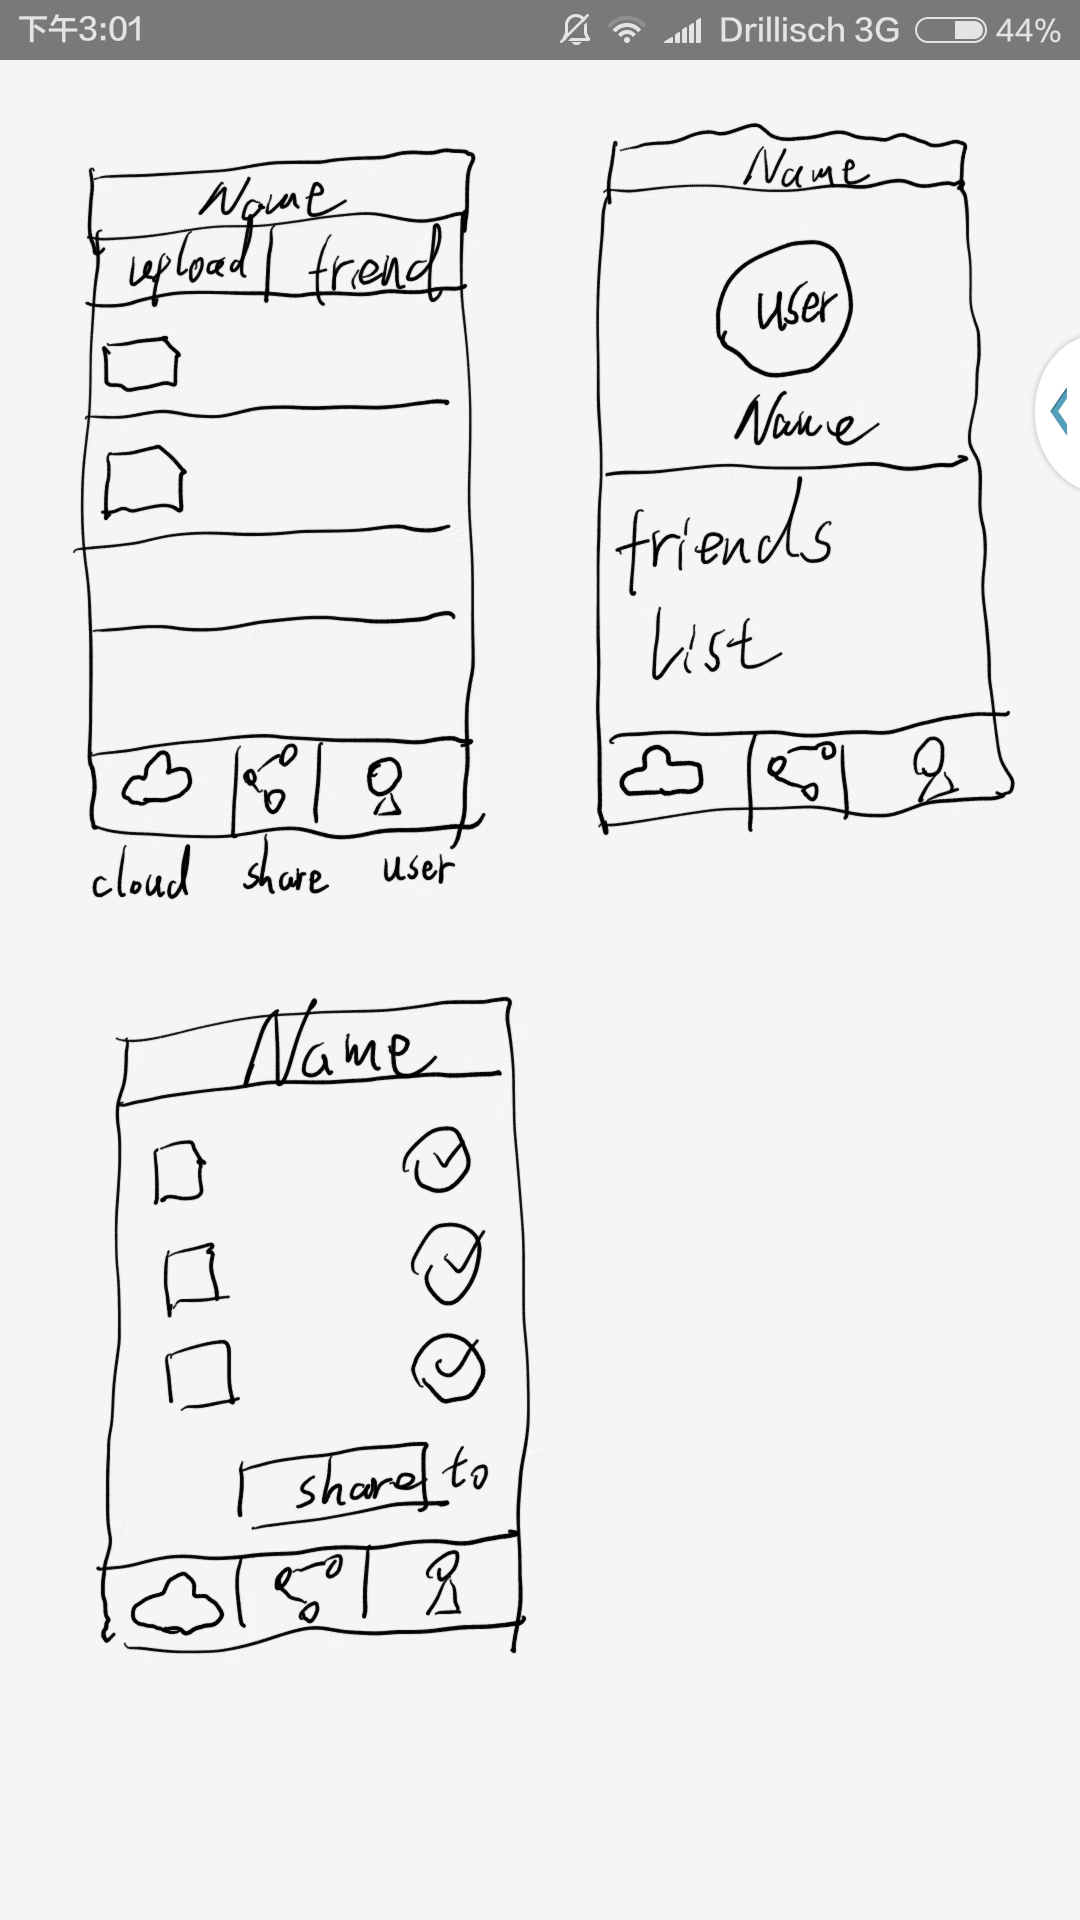 下午3:01 Drillisch 3G 44%
Name
upload friend
cloud share user
Name
user
Name
friends
List
Name
share to